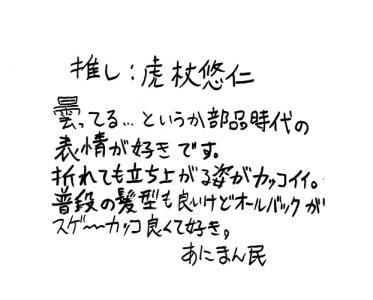 推し:虎杖悠仁
曇ってる…というか部品時代の
表情が好きです。
折れても立ち上がる姿がカッコイイ。
普段の髪型も良いけどオールバックが
スゲ〜〜カッコ良くて好き。
あにまん民